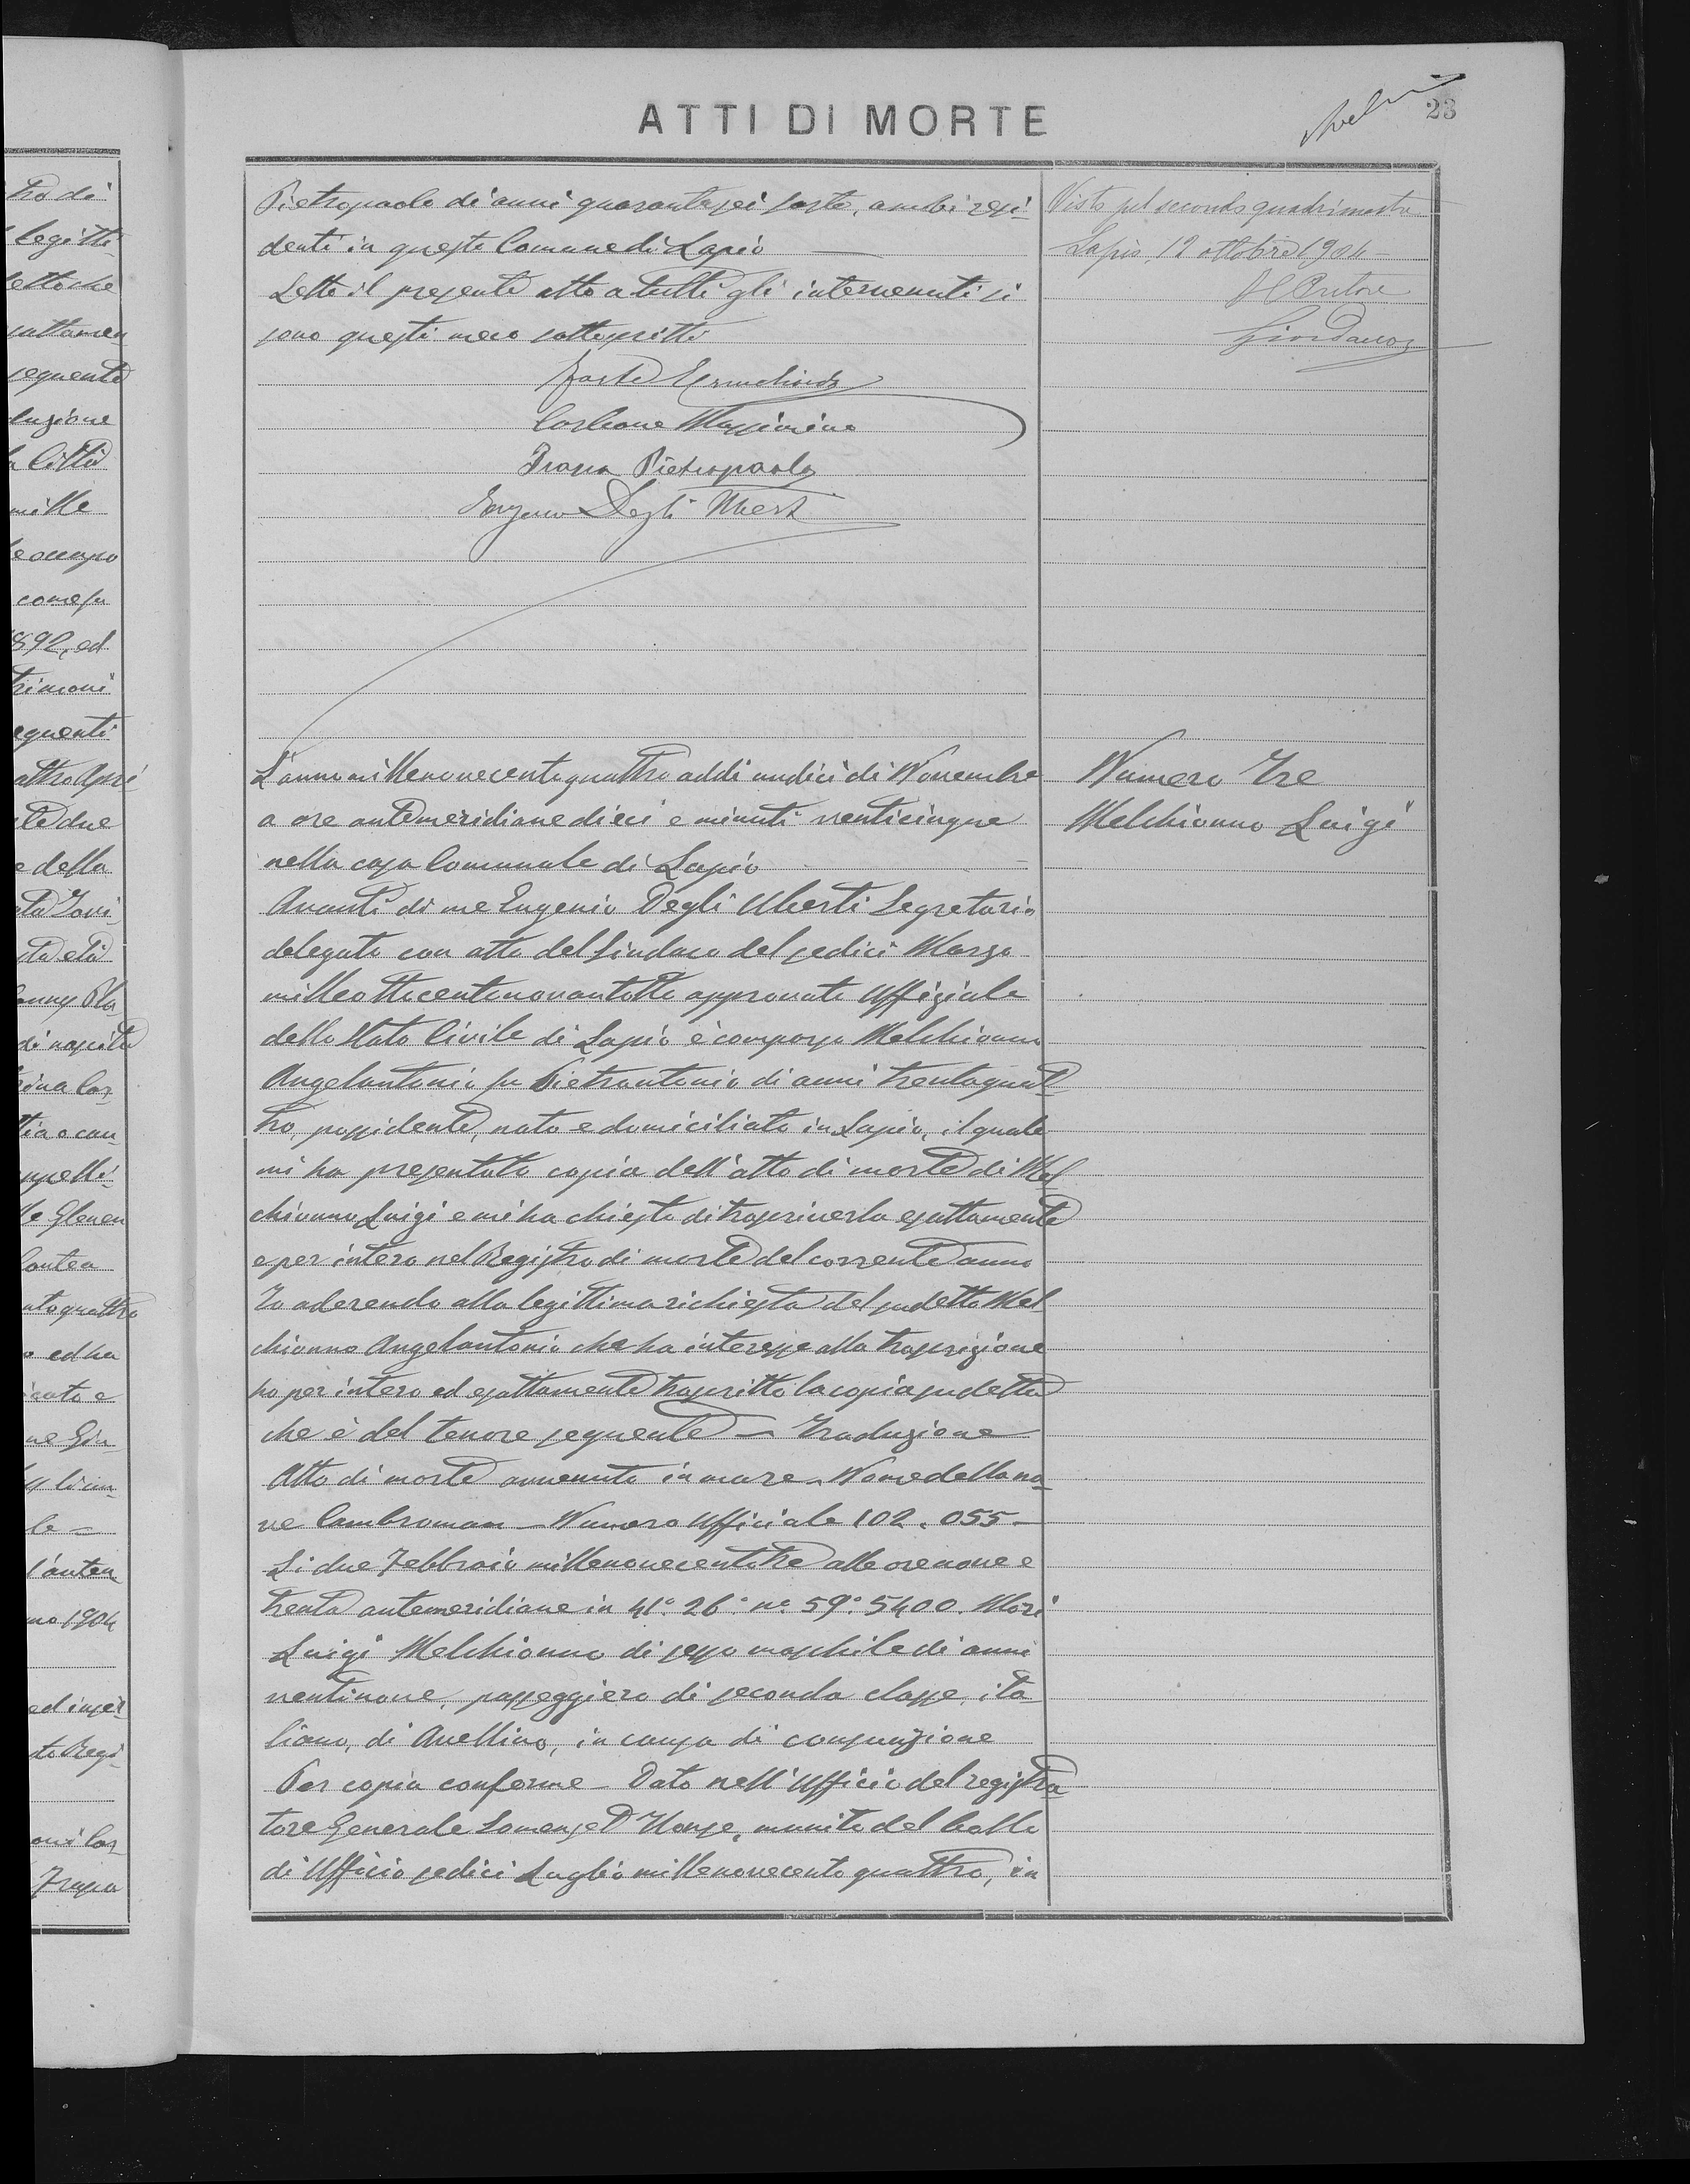 ATTI DI MORTE
23
Pietropaolo di anni quarantasei sarto, ambi resi-
denti in questo Comune di Lapio
Letto il presente atto a tutti gli intervenuti si
sono questi meco sottoscritti
Carbone Massimino
Trapa Pietropaolo
Eugenio Degli Uberti
Visto pel secondo quadrimestre
Lapio 12 ottobre 1904 -
Il Pretore
Giordano
L'anno millenovecentoquattro addì undici di Novembre
a ore antemeridiane dieci e minuti venticinque
nella casa Comunale di Lapio
Avanti di me Eugenio Degli Uberti Segretario
delegato con atto del Sindaco del sedici Marzo
milleottocentonovantotto approvato Uffiziale
dello Stato Civile di Lapio è comparso Melchionno
Angelantonio fu Pietrantonio di anni trentaquat-
tro, possidente, nato e domiciliato in Lapio, il quale
mi ha presentato copia dell'atto di morte di Mel-
chionno Luigi e mi ha chiesto di trascriverla esattamente
e per intero nel Registro di morte del corrente anno
Io aderendo alla legittima richiesta del sudetto Mel-
chionno Angelantonio che ha interesse alla trascrizione
ho per intero ed esattamente trascritto la copia sudetta
che è del tenore seguente - Traduzione
Atto di morte avvenuta in mare - Nome della na-
ve Cambroman - Numero Ufficiale 102.055 -
Li due Febbraio millenovecentotre alle ore nove e
trenta antemeridiane in 41° 26° n° 59° 5400. Morì
Luigi Melchionno di sesso maschile di anni
ventinove, passeggiero di seconda classe, ita-
liano, di Avellino, in causa di consunzione
Per copia conforme - Dato nell'Ufficio del registra
tore Generale Somerset House, munito del bollo
di Ufficio sedici Luglio millenovecentoquattro, in
Numero Tre
Melchionno Luigi